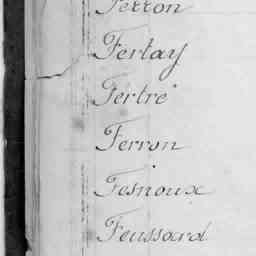 Perron
Fertay
Fertré
Ferron
Fesnoux
Feussard